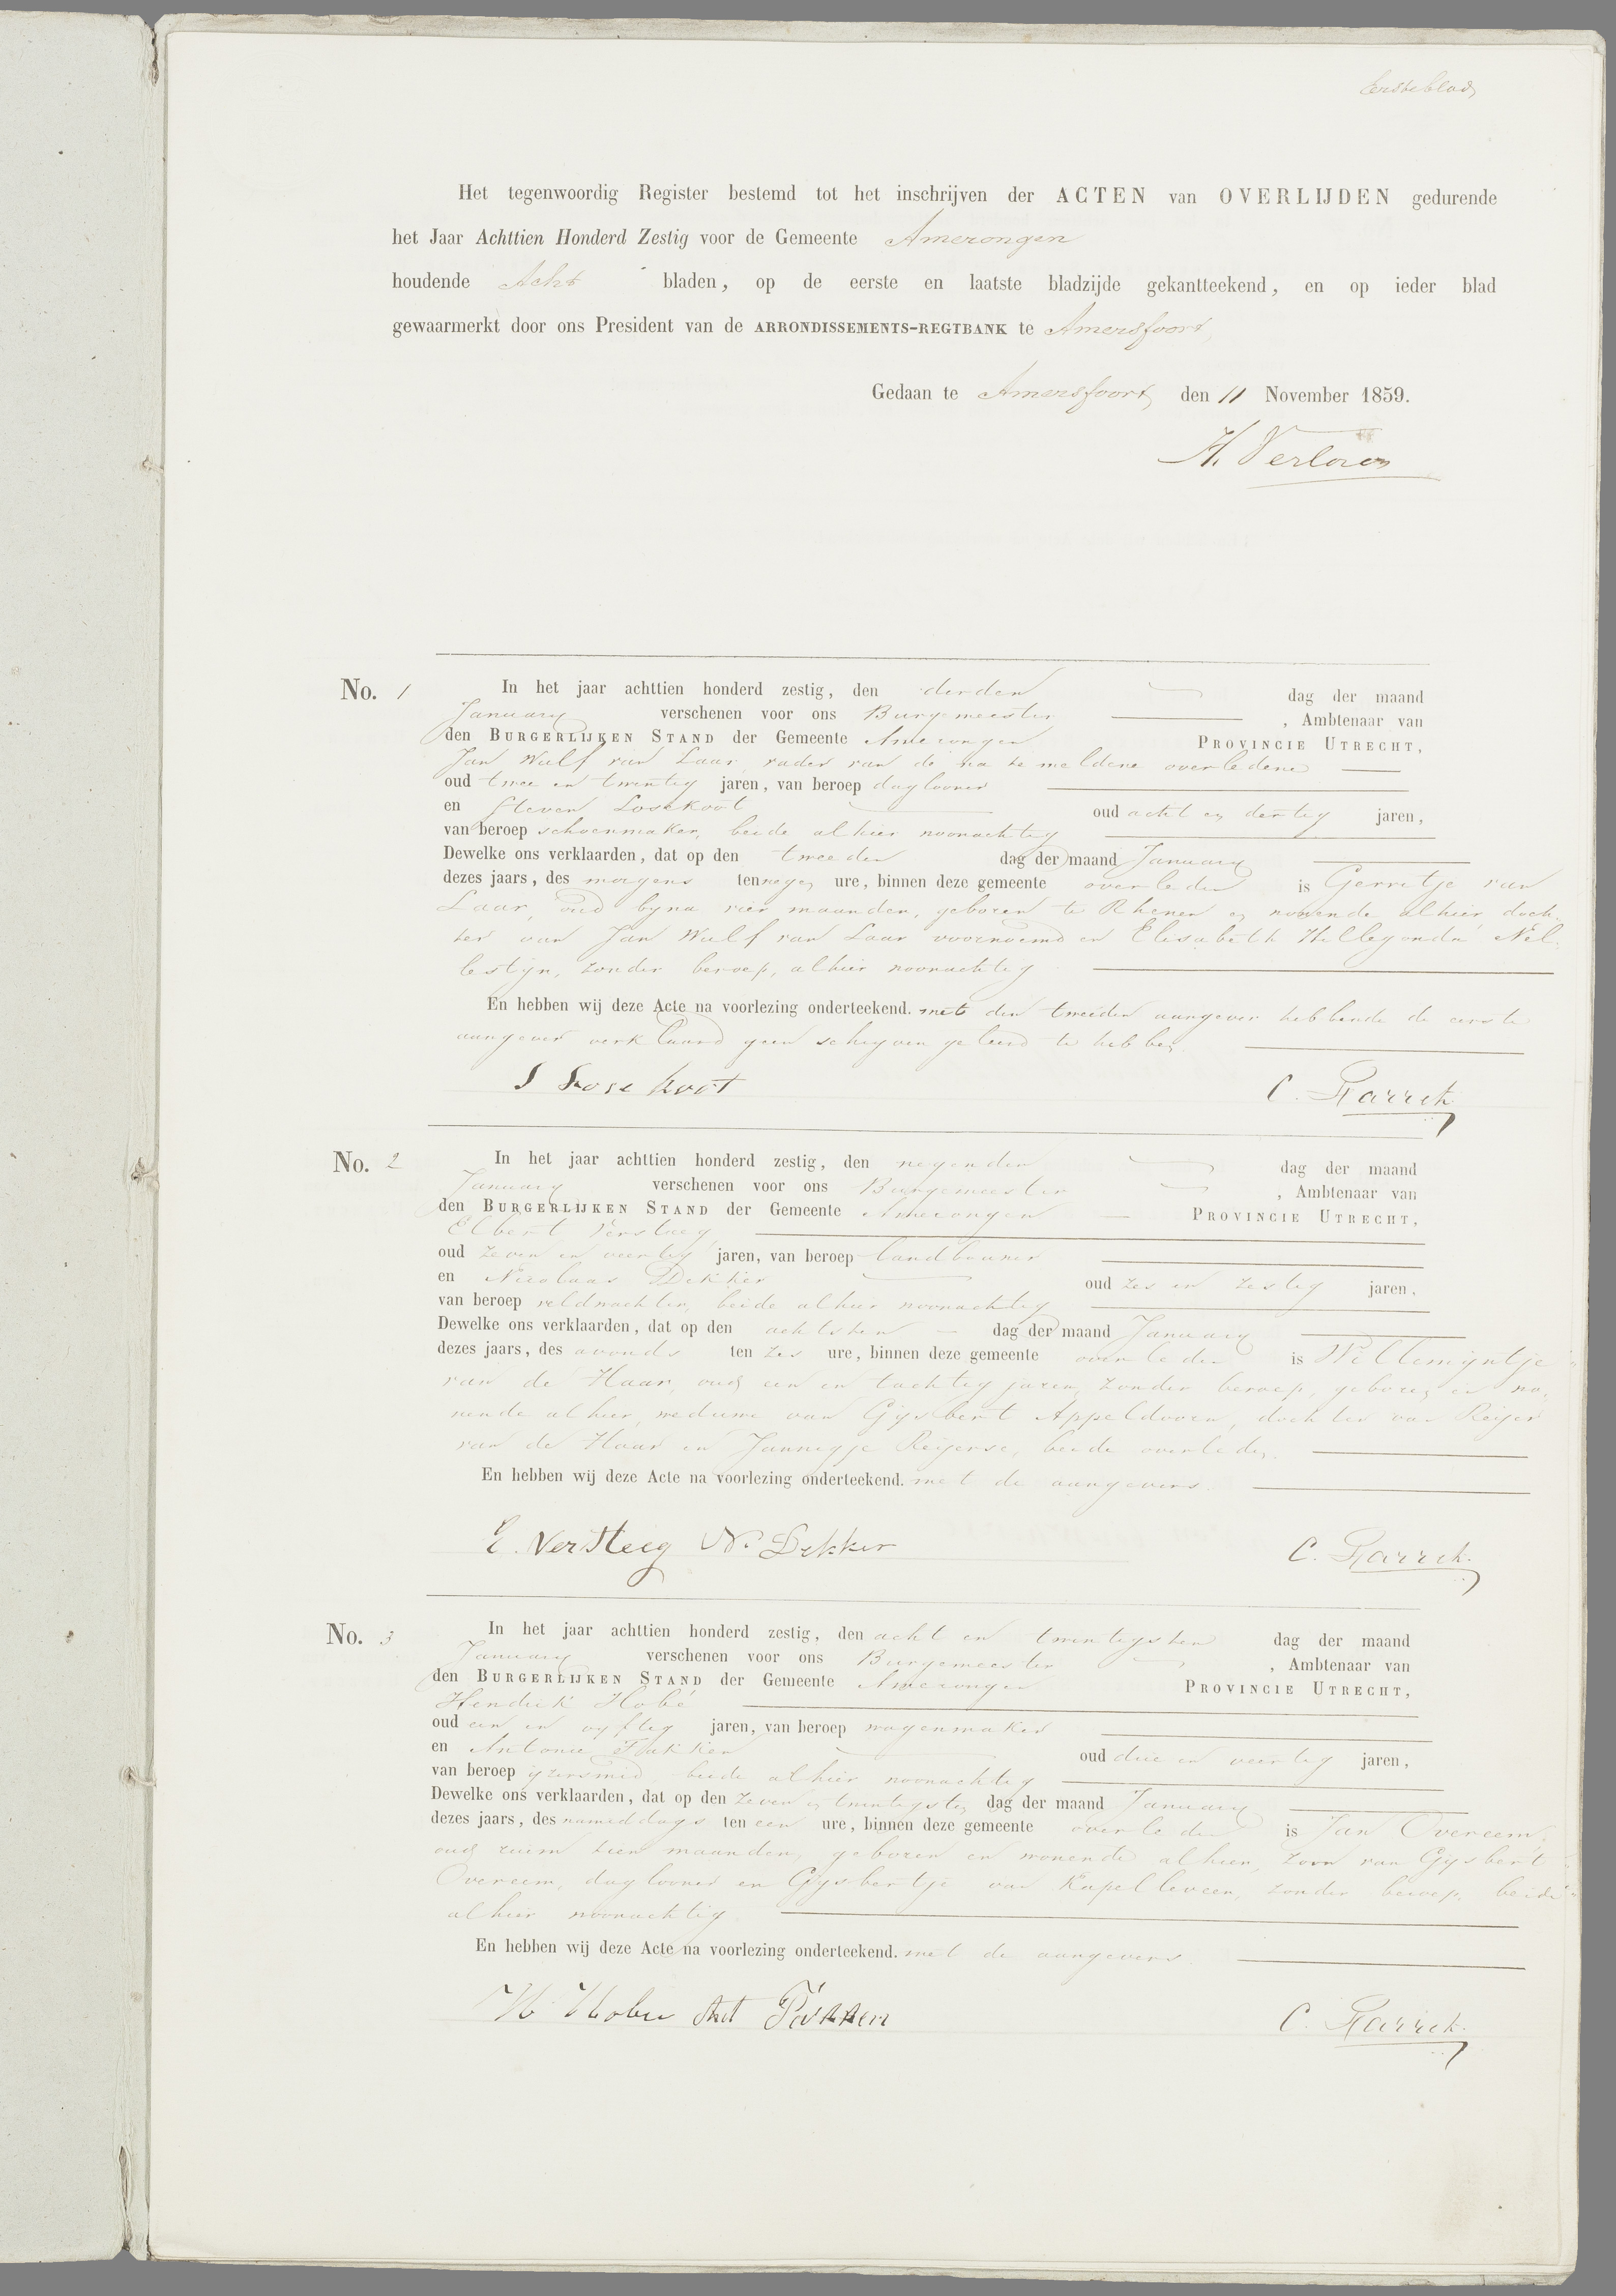 Eersteblad
Het tegenwoordig Register bestemd tot het inschrijven der ACTEN van OVERLIJDEN gedurende
het Jaar Achttien Honderd Zestig voor de Gemeente Amerongen
houdende Acht bladen, op de eerste en laatste bladzijde gekantteekend, en op ieder blad
gewaarmerkt door ons President van de ARRONDISSEMENTS-REGTBANK te Amersfoort,
Gedaan te Amersfoort, den 11 November 1859.
H. Verloren
No. 1 In het jaar achttien honderd zestig, den derden dag der maand
January verschenen voor ons Burgemeester , Ambtenaar van
den BURGERLIJKEN STAND der Gemeente Amerongen PROVINCIE UTRECHT,
Jan Wulf van Laar, vader van de na te meldene overledene
oud twee en twintig jaren, van beroep daglooner
en Steven Losekoot oud acht en dertig jaren,
van beroep schoenmaker, beide alhier woonachtig
Dewelke ons verklaarden, dat op den tweeden dag der maand January
dezes jaars, des morgens ten negen ure, binnen deze gemeente overleden is Gerritje van
Laar, oud byna vier maanden, geboren te Rhenen en wonende alhier doch-
ter van Jan Wulf van Laar voornoemd en Elisabeth Hillegonda Nel-
lestijn, zonder beroep, alhier woonachtig
En hebben wij deze Acte na voorlezing onderteekend. met den tweeden aangever hebbende de eerste
aangever verklaard geen schryven geleerd te hebben.
S Losekoot C.
No. 2 In het jaar achttien honderd zestig, den negenden dag der maand
January verschenen voor ons Burgemeester , Ambtenaar van
den BURGERLIJKEN STAND der Gemeente Amerongen PROVINCIE UTRECHT,
Elbert Versteeg
oud zeven en veertig jaren, van beroep landbouwer
en Nicolaas Dekker oud zes en zestig jaren,
van beroep veldwachter, beide alhier woonachtig
Dewelke ons verklaarden, dat op den achtsten dag der maand January
dezes jaars, des avonds ten zes ure, binnen deze gemeente overleden is Willemijntje
van de Haar, oud een en tachtig jaren, zonder beroep, geboren en wo-
nende alhier, weduwe van Gijsbert Appeldoorn, dochter van Reijer
van de Haar en Jannigje Reijerse, beide overleden.
En hebben wij deze Acte na voorlezing onderteekend. met de aangevers.
E. Versteeg N. Dekker C.
No. 3 In het jaar achttien honderd zestig, den acht en twintigsten dag der maand
January verschenen voor ons Burgemeester , Ambtenaar van
den BURGERLIJKEN STAND der Gemeente Amerongen PROVINCIE UTRECHT,
Hendrik Hobé
oud een en vyftig jaren, van beroep wagenmaker
en Antonie Fukker oud drie en veertig jaren,
van beroep yzersmid, beide alhier woonachtig
Dewelke ons verklaarden, dat op den zeven en twintigsten dag der maand January
dezes jaars, des namiddags ten een ure, binnen deze gemeente overleden is Jan Overeem,
oud ruim tien maanden, geboren en wonende alhier, zoon van Gijsbert
Overeem, daglooner en Gijsbertje van Kapelleveen, zonder beroep, beide
alhier woonachtig
En hebben wij deze Acte na voorlezing onderteekend. met de aangevers.
H Ant C.